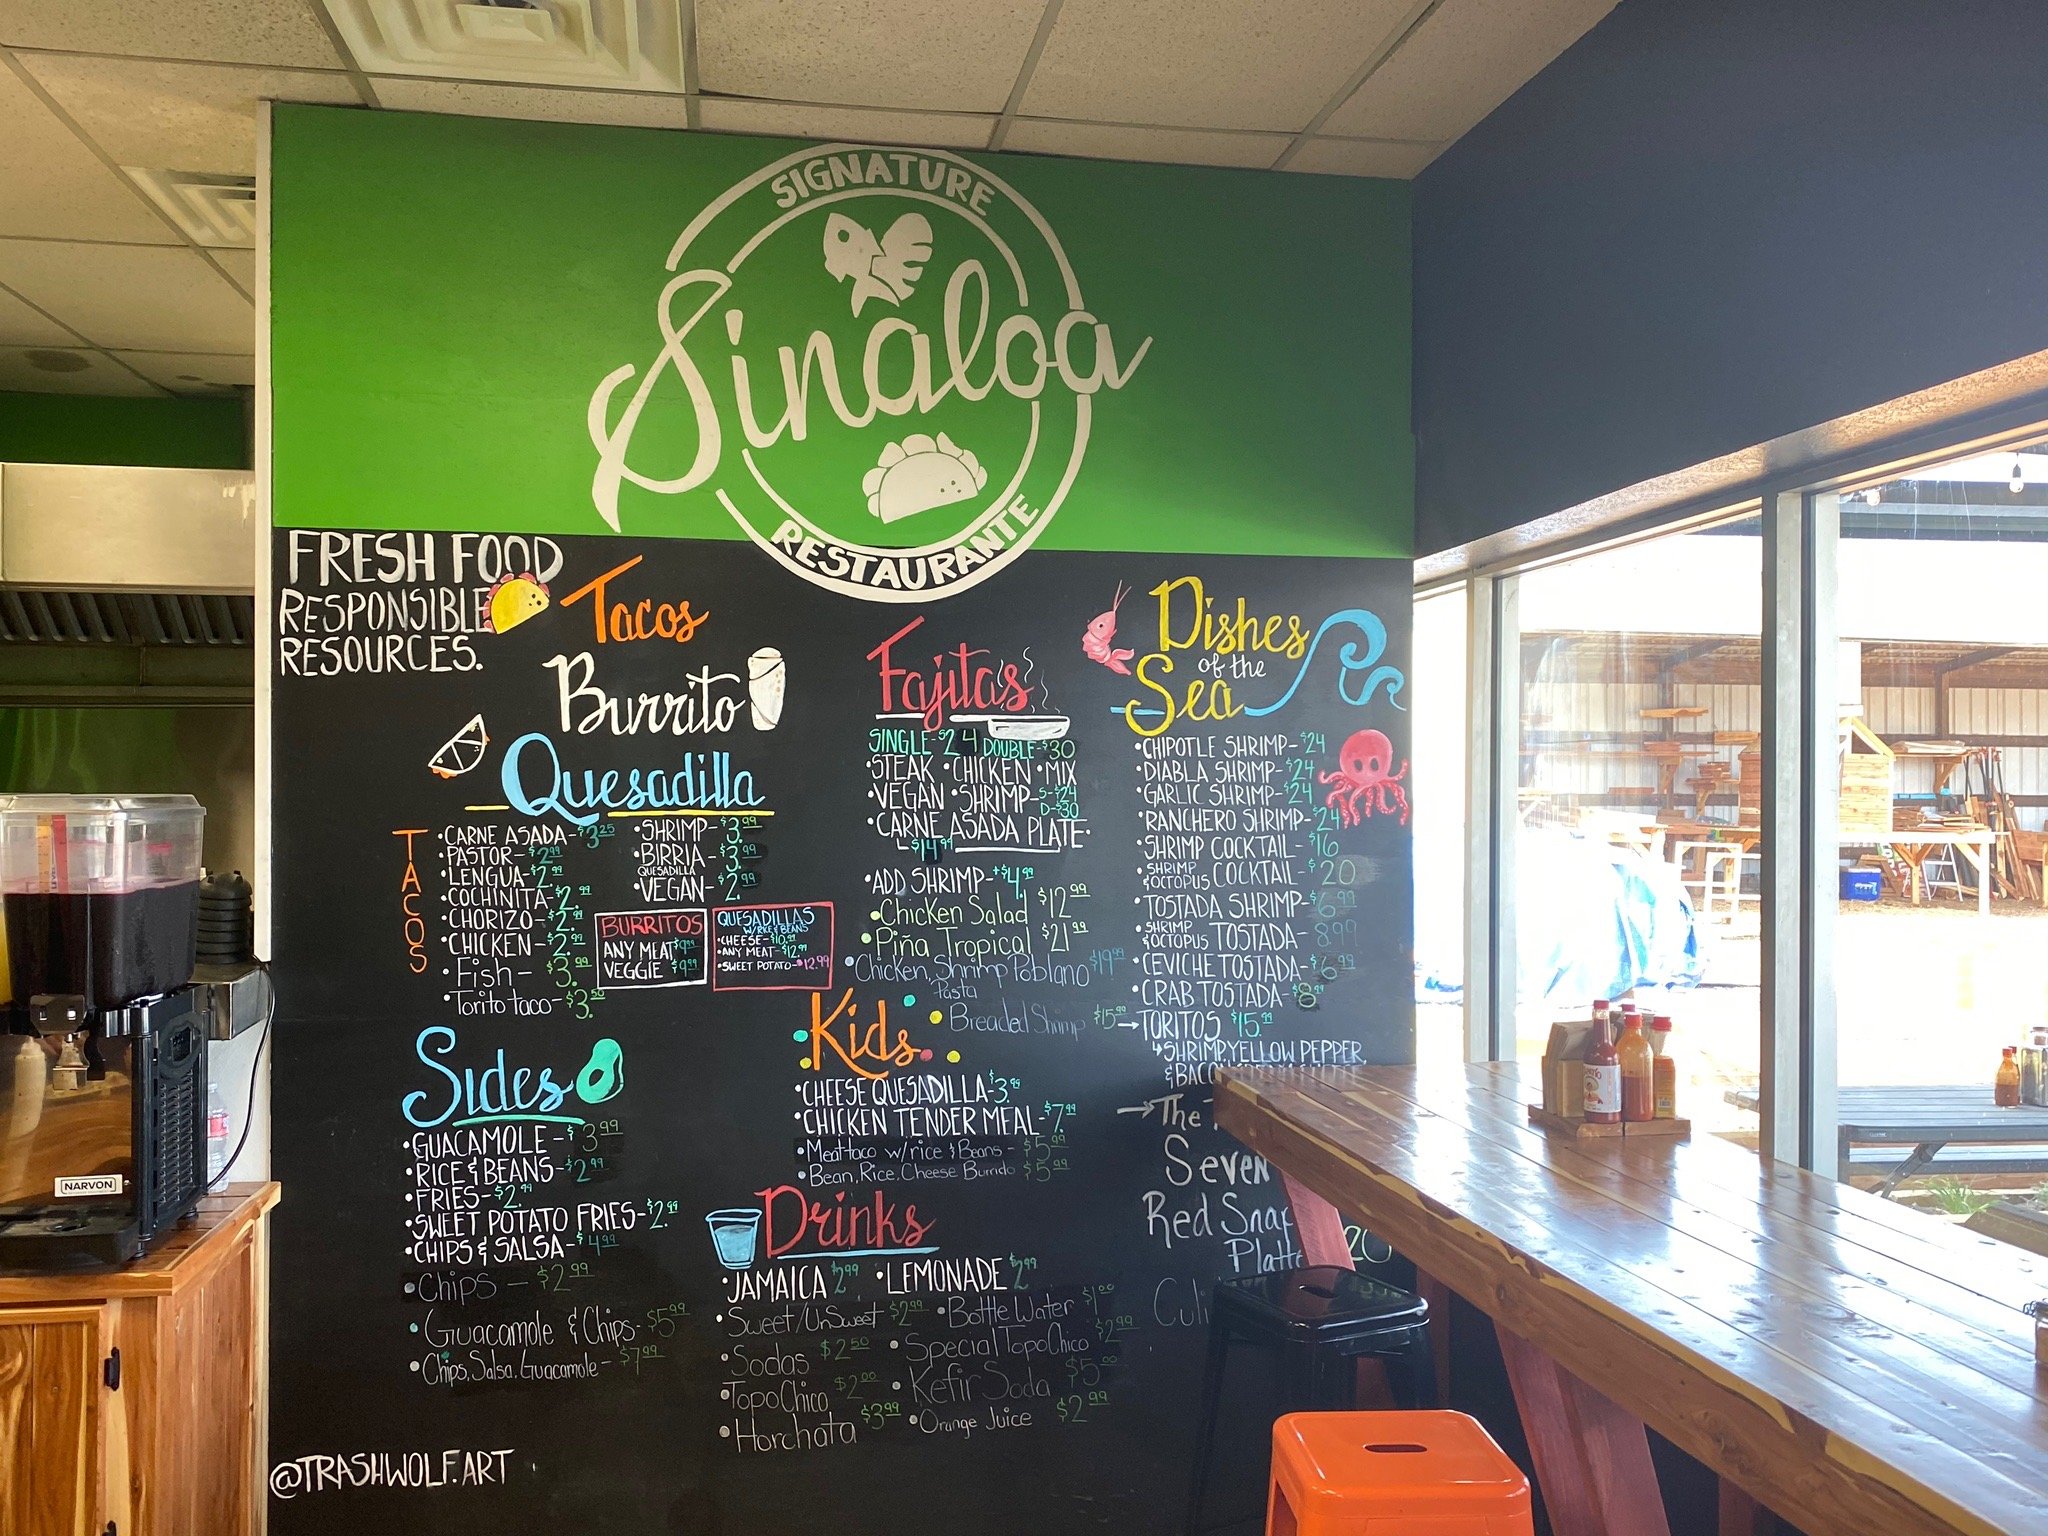 SIGNATURE
Sinaloa
RESTAURANTE
FRESH FOOD
RESPONSIBLE
RESOURCES.
Tacos
Burrito
Quesadilla
TACOS
•CARNE ASADA-$3.25
•PASTOR-$2.99
•LENGUA-$2.99
•COCHINITA-$2.99
•CHORIZO-$2.99
•CHICKEN-$2.99
•Fish-$3.99
•Torito taco-$3.50
•SHRIMP-$3.99
•BIRRIA-$3.99
QUESADILLA
•VEGAN-$2.99
BURRITOS
ANY MEAT $9.99
VEGGIE $9.99
QUESADILLAS
W/RICE & BEANS
•CHEESE-$10.99
•ANY MEAT-$12.99
•SWEET POTATO-$12.99
Sides
•GUACAMOLE-$3.99
•RICE & BEANS-$2.99
•FRIES-$2.99
•SWEET POTATO FRIES-$2.99
•CHIPS & SALSA-$4.99
•Chips-$2.99
•Guacamole & Chips-$5.99
•Chips, Salsa, Guacamole-$7.99
@TRASHWOLF.ART
Fajitas
SINGLE-$24 DOUBLE-$30
•STEAK •CHICKEN •MIX
•VEGAN •SHRIMP-S-$24
D-$30
•CARNE ASADA PLATE•
$14.99
•ADD SHRIMP-+$4.99
•Chicken Salad $12.99
•Piña Tropical $21.99
•Chicken, Shrimp Poblano $19.99
Pasta
•Breaded Shrimp $15.99
Kids
•CHEESE QUESADILLA-$3.99
•CHICKEN TENDER MEAL-$7.99
•Meat taco w/rice & Beans-$5.99
•Bean, Rice, Cheese Burrido $5.99
Drinks
•JAMAICA $2.99 •LEMONADE $2.99
•Sweet/UnSweet $2.99 •Bottle Water $1.00
•Sodas $2.50 •Special TopoChico $2.99
•TopoChico $2.00 •Kefir Soda $5.00
•Horchata $3.99 •Orange Juice $2.99
Dishes
of the
Sea
•CHIPOTLE SHRIMP-$24
•DIABLA SHRIMP-$24
•GARLIC SHRIMP-$24
•RANCHERO SHRIMP-$24
•SHRIMP COCKTAIL-$16
•SHRIMP & OCTOPUS COCKTAIL-$20
•TOSTADA SHRIMP-$6.99
•SHRIMP & OCTOPUS TOSTADA-8.99
•CEVICHE TOSTADA-$6.99
•CRAB TOSTADA-$8.99
→TORITOS $15.99
↳SHRIMP, YELLOW PEPPER,
& BACON
→The
Seven
Red Snap
Platte 20
Culi
NARVON